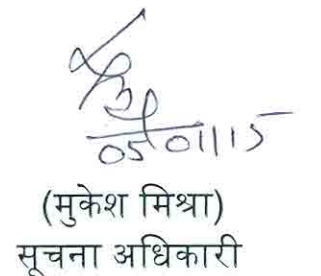 05/01/15
(मुकेश मिश्रा)
सूचना अधिकारी